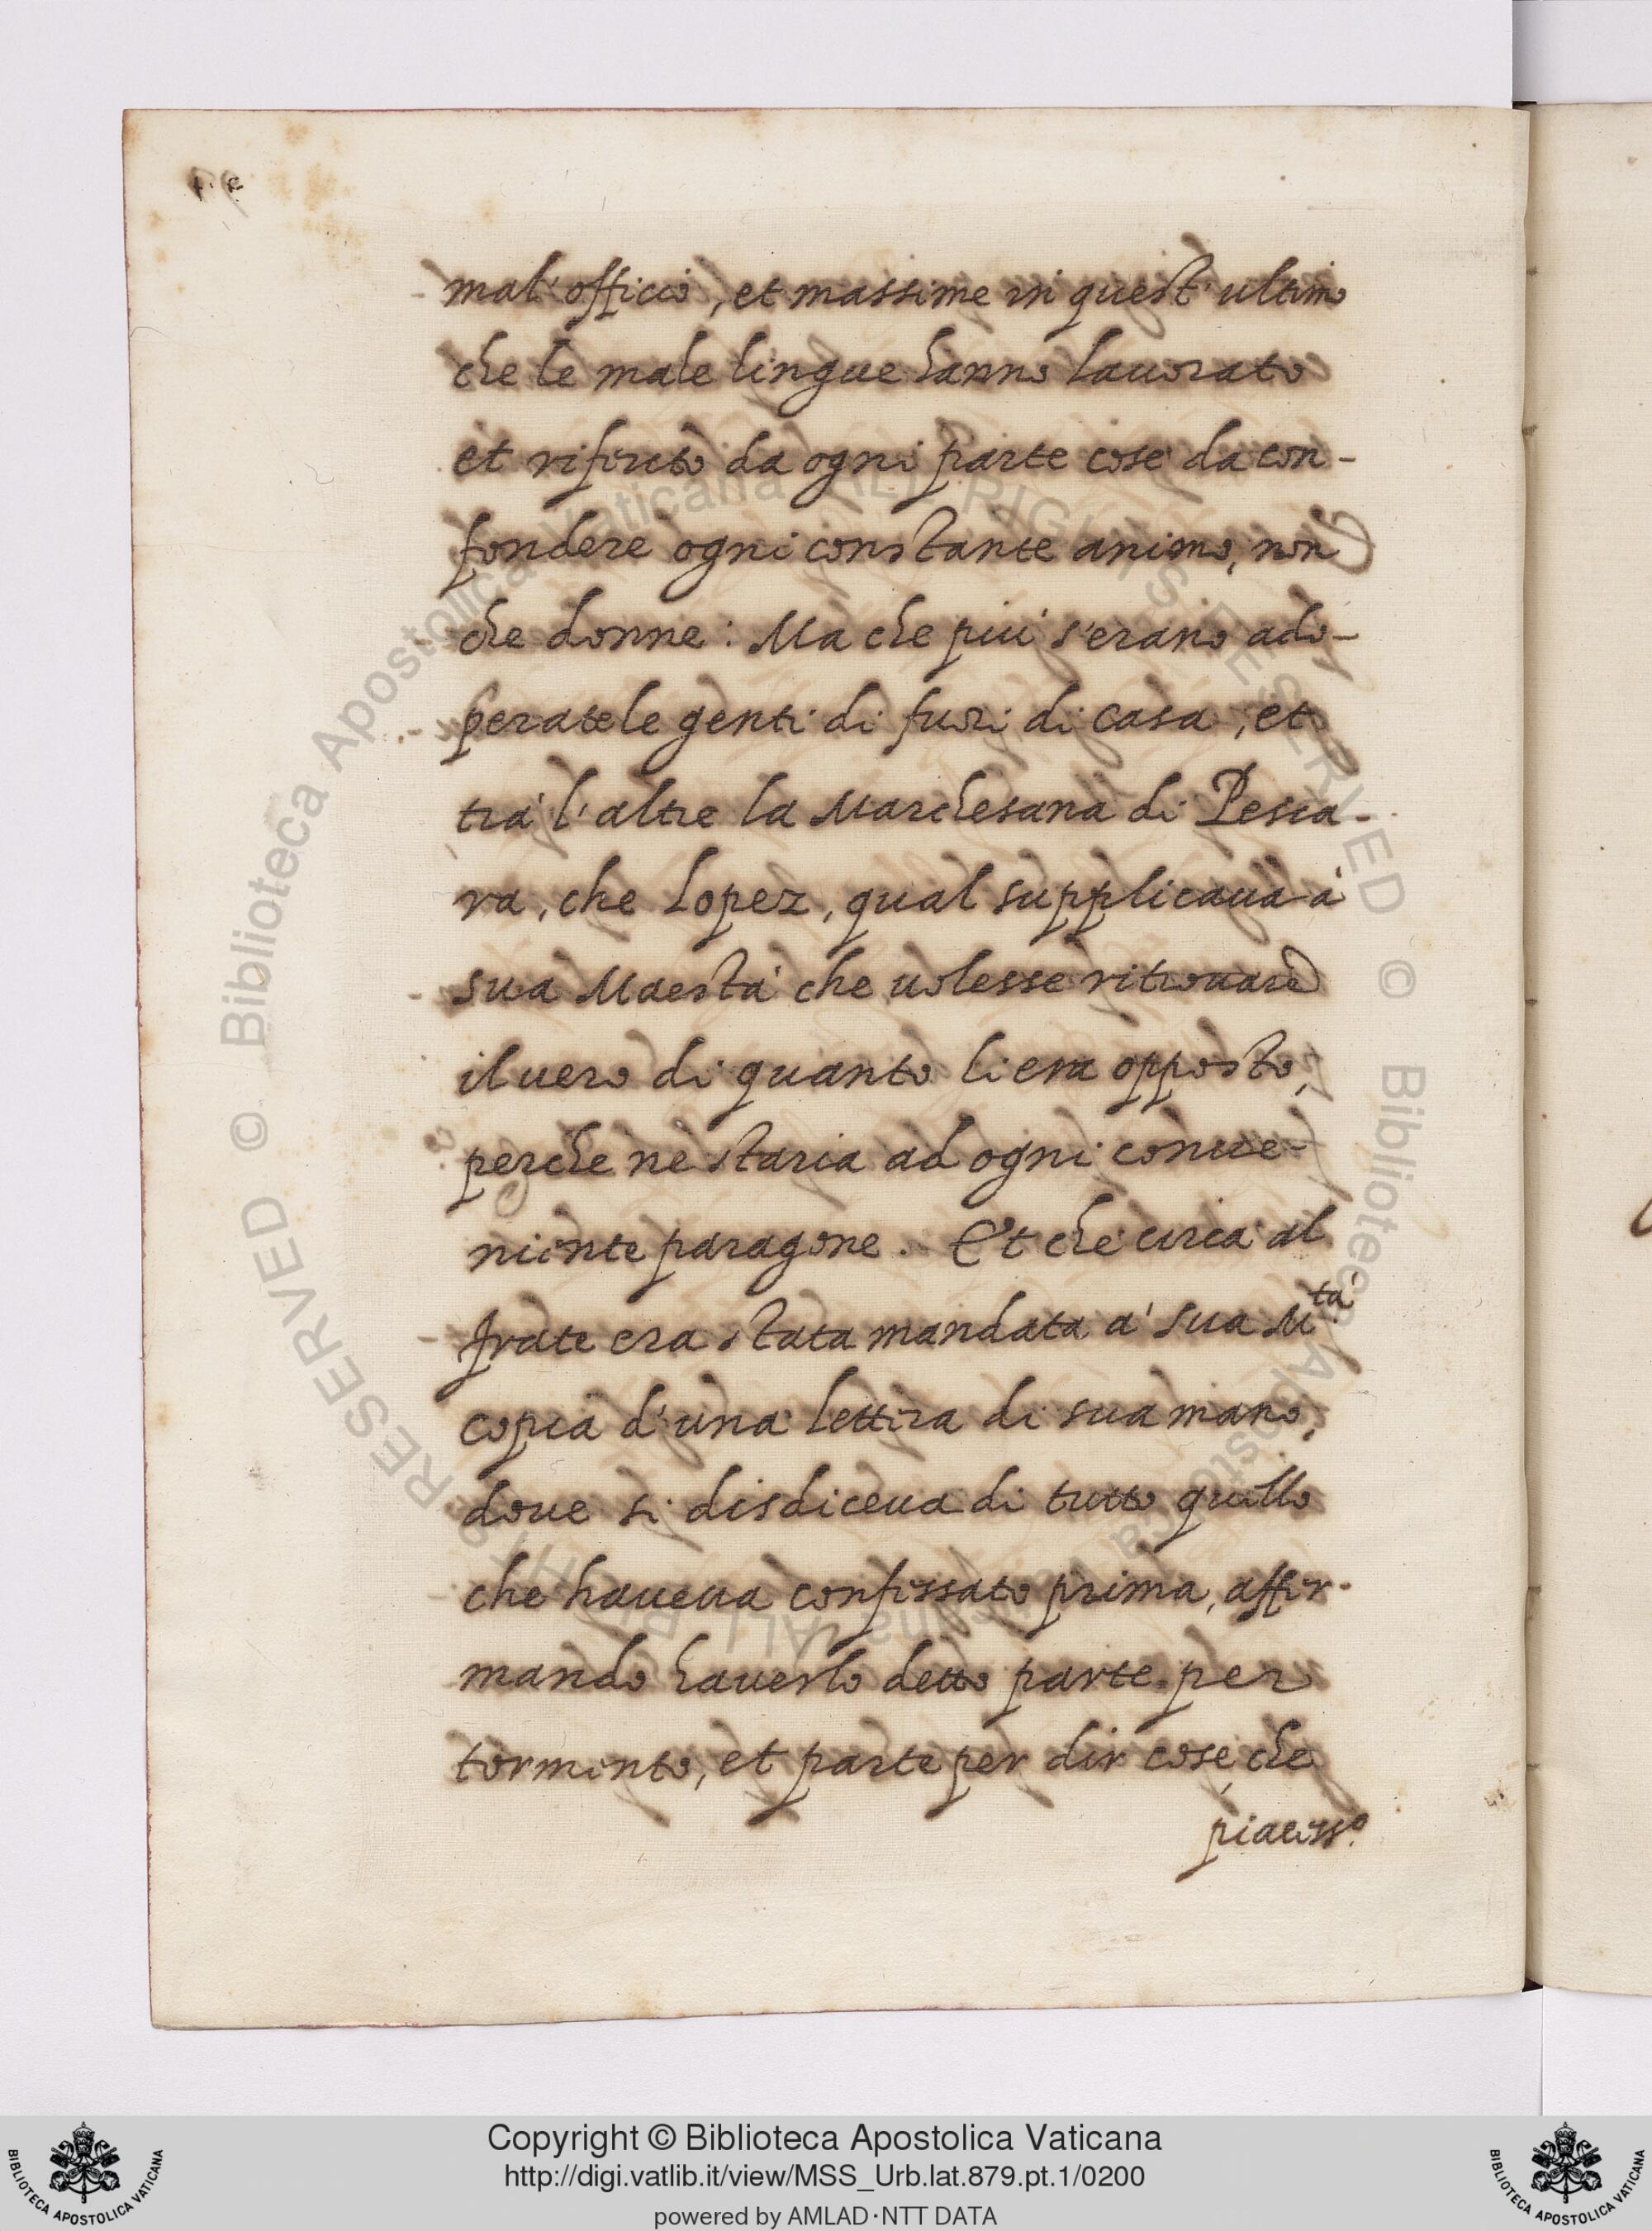 mal'officio, et massime in quest'ultimo
che le male lingue hanno lauorato
et riferito da ogni parte cose da con-
fondere ogni constante animo, non
che donne: Ma che più s'erano ado-
perate le genti di fuori di casa, et
trà l'altre la Marchesana di Pesca-
ra, che Lopez, qual supplicaua à
sua Maestà che uolesse ritrouare
il uero di quanto li era opposto,
perche ne staria ad ogni conue-
niente paragone. Et che circa al
frate era stata mandata à sua M.tà
copia d'una lettera di sua mano,
doue si disdiceua di tutto quello
che haueua confessato prima, affer-
mando hauerlo detto parte per
tormento, et parte per dir cose che
© Biblioteca Apostolica Vaticana ALL RIGHTS RESERVED © Biblioteca Apostolica Vaticana ALL RIGHTS RESERVED
Copyright © Biblioteca Apostolica Vaticana
http://digi.vatlib.it/view/MSS_Urb.lat.879.pt.1/0200
powered by AMLAD·NTT DATA
BIBLIOTECA APOSTOLICA VATICANA
BIBLIOTECA APOSTOLICA VATICANA